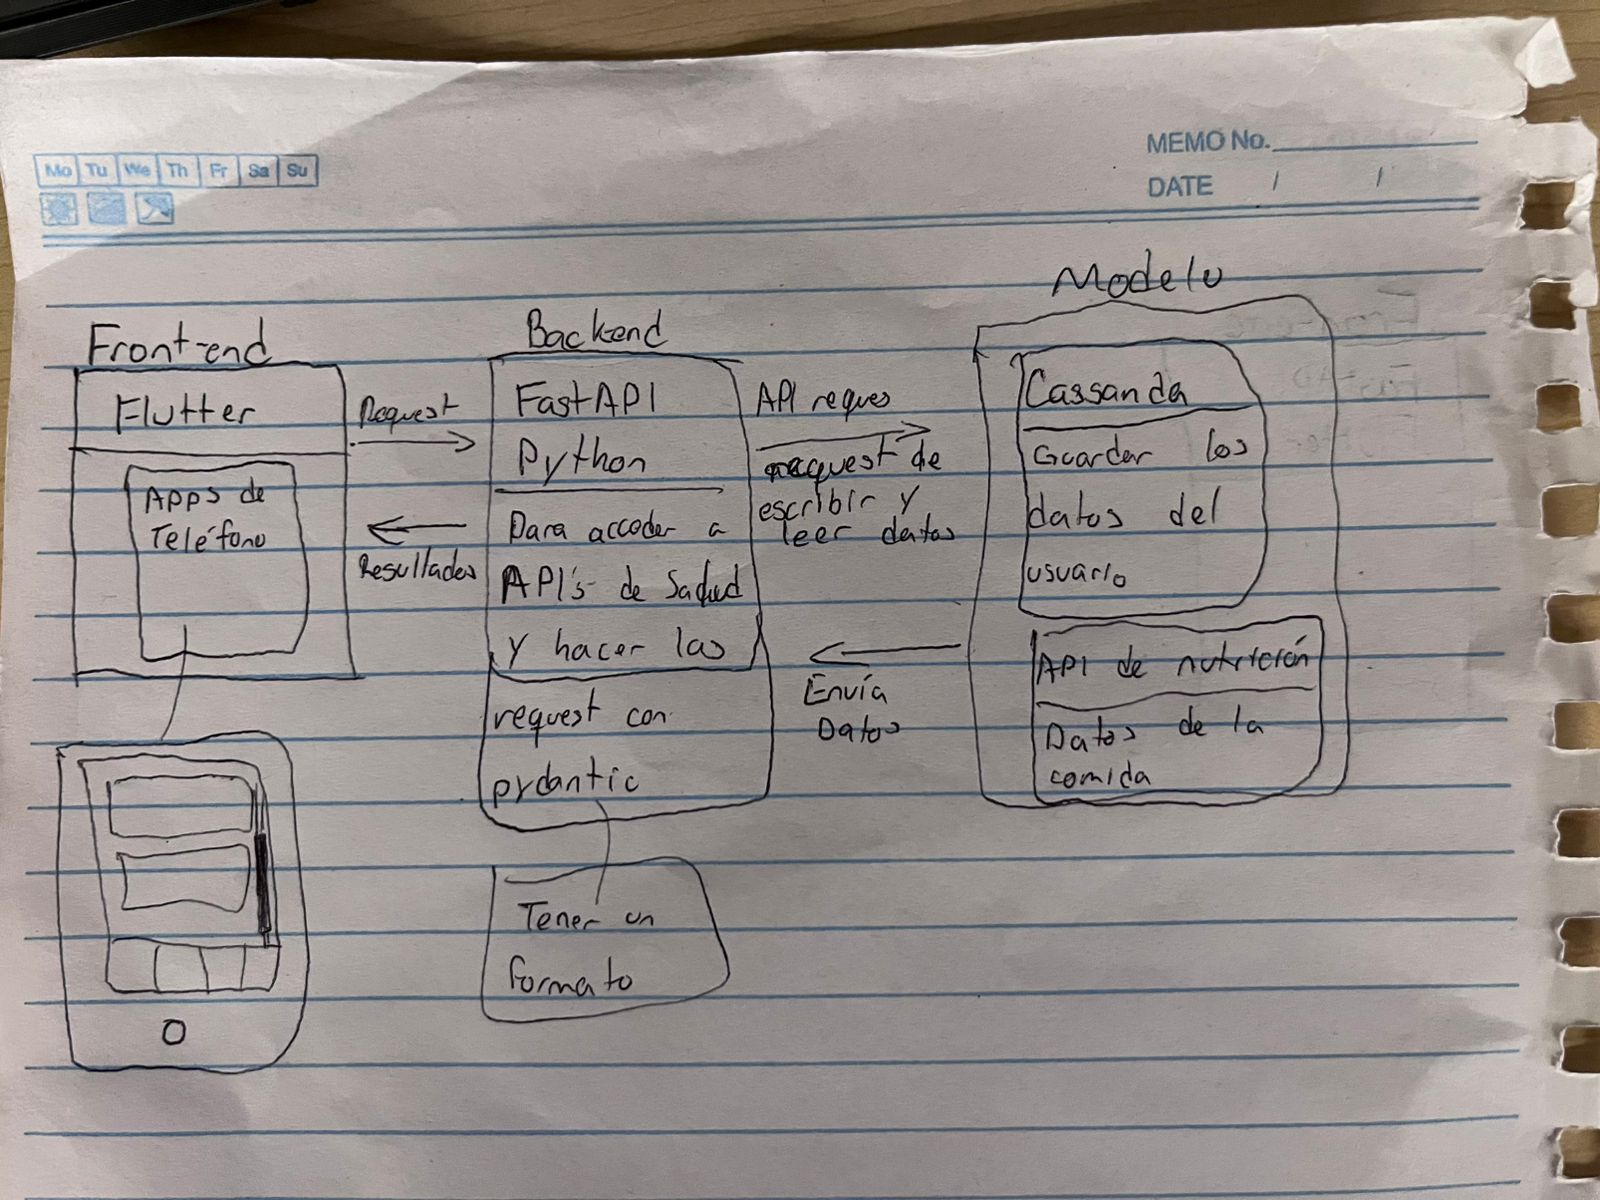 Mo Tu We Th Fr Sa Su
MEMO No.
DATE / /
Front-end
Flutter
Apps de
Teléfono
Request
Resultados
Backend
FastAPI
Python
Para acceder a
API's de Salud
y hacer las
request con
pydantic
Tener un
formato
API reques
request de
escribir y
leer datos
Envía
Datos
Modelo
Cassanda
Guardar los
datos del
usuario
API de nutrición
Datos de la
comida